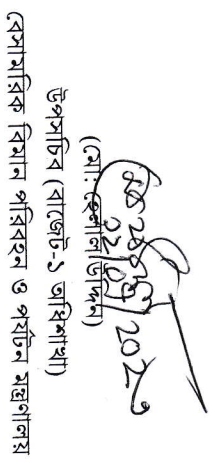 (মো: হেলাল উদ্দিন)
উপসচিব (বাজেট-১ অধিশাখা)
বেসামরিক বিমান পরিবহন ও পর্যটন মন্ত্রণালয়